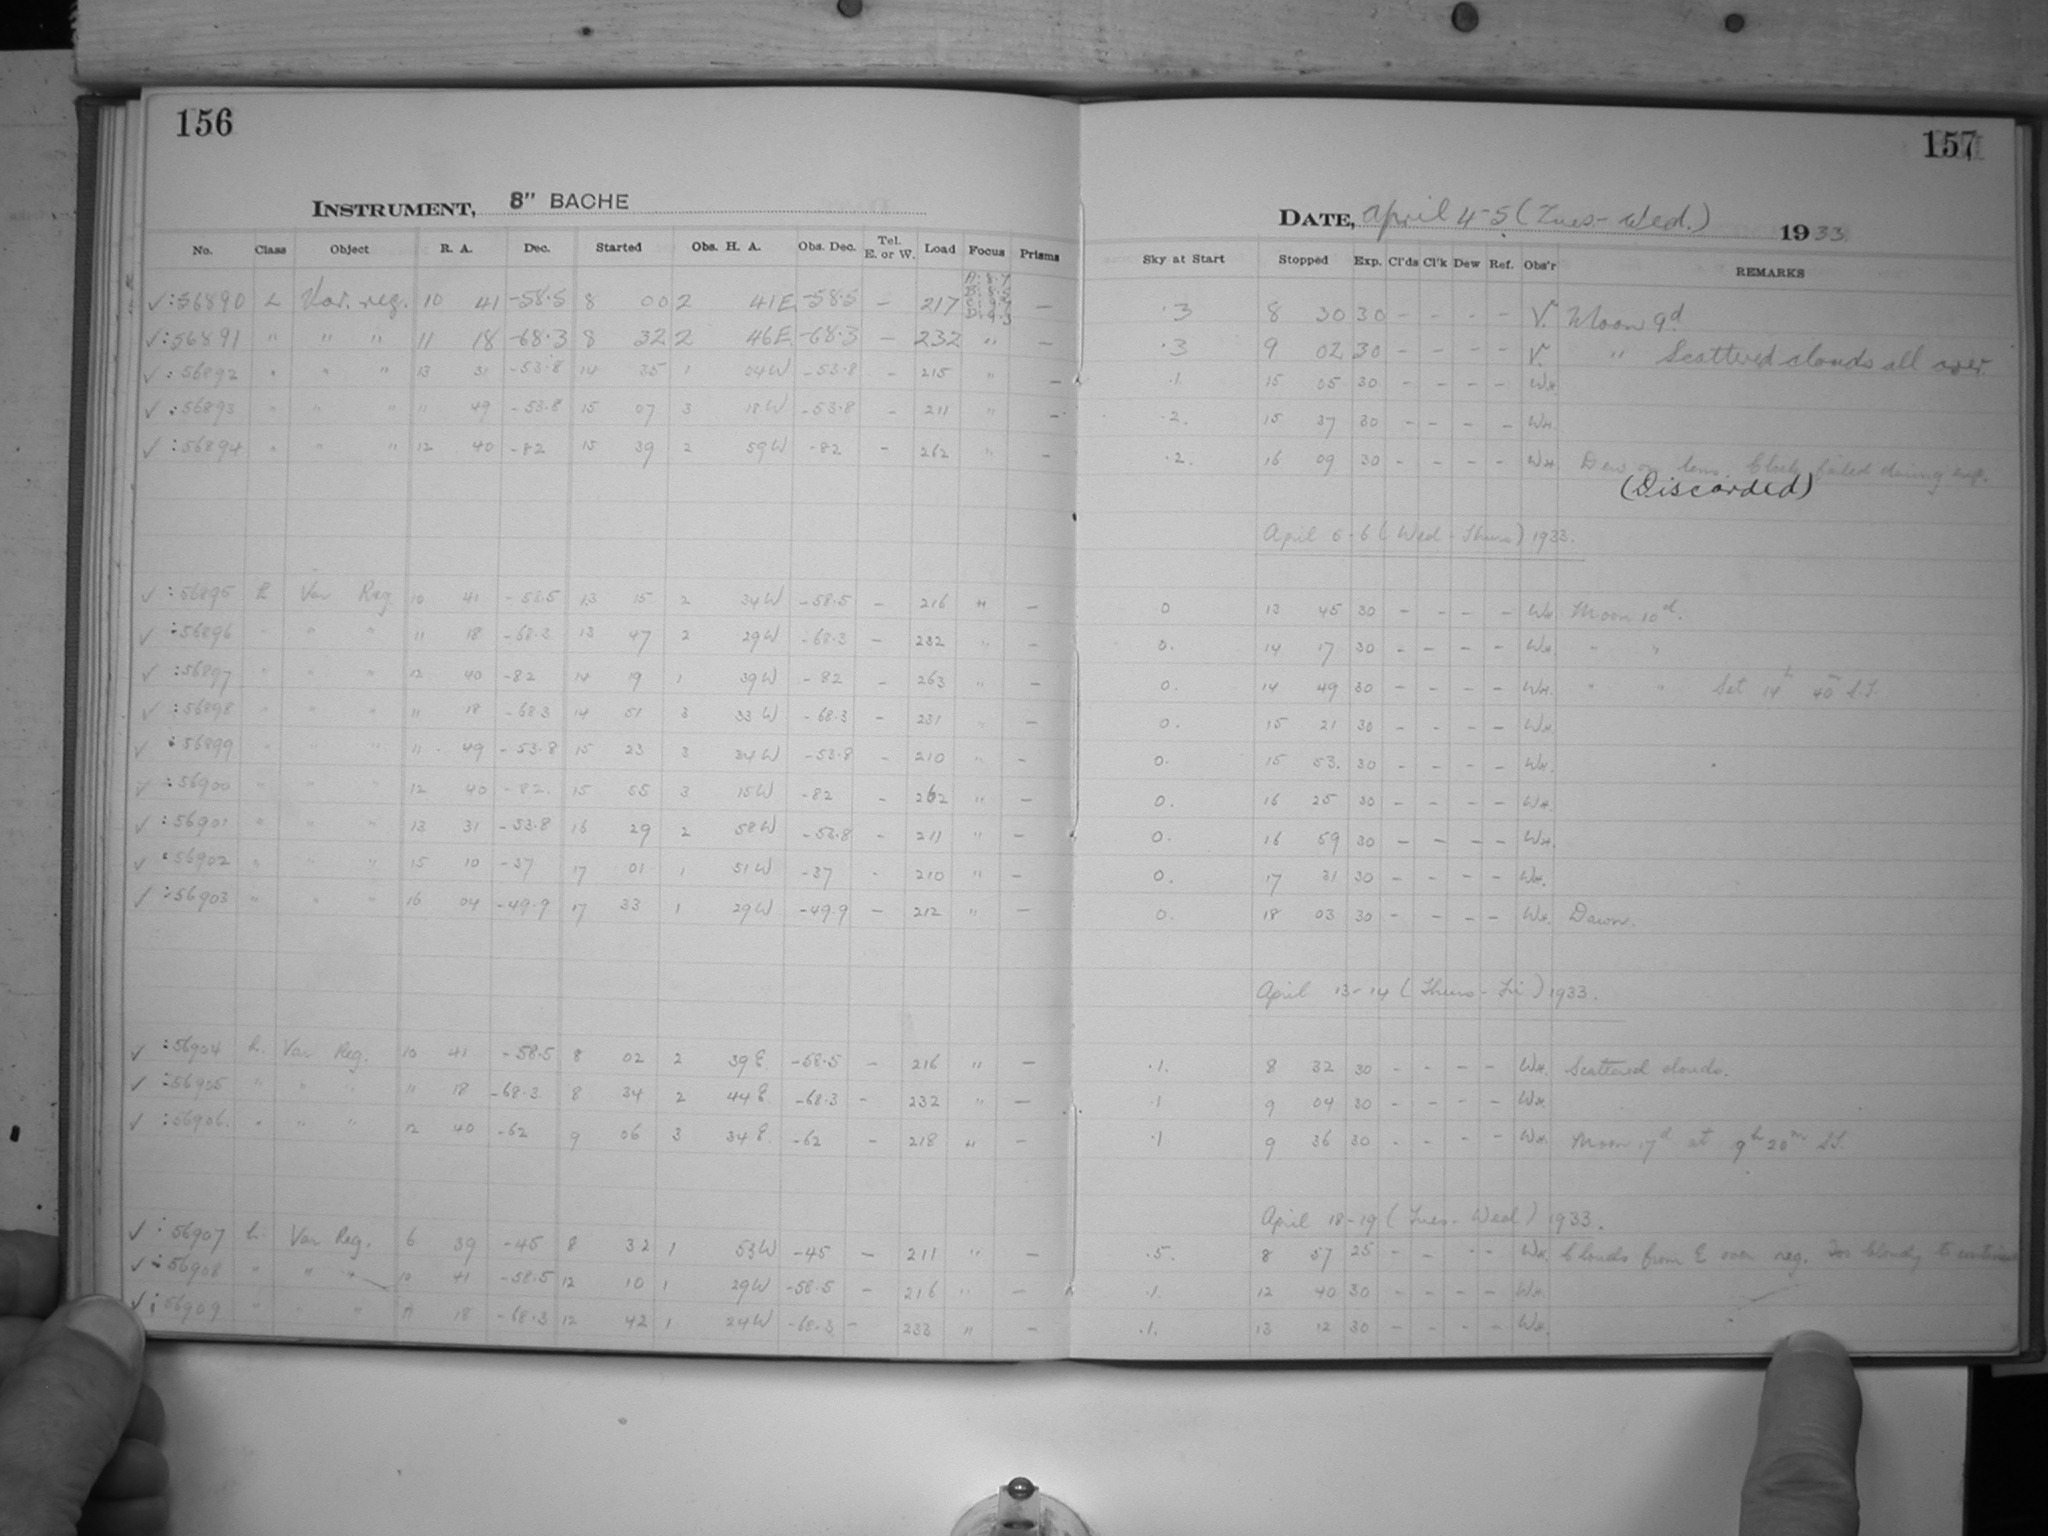 156
157
INSTRUMENT, 8" BACHE
DATE, April 4-5 (Tues-Wed.) 1933
No. Class Object R. A. Dec. Started Obs. H. A. Obs. Dec. Tel. E. or W. Load Focus Prisms Sky at Start Stopped Exp. Cl'ds Cl'k Dew Ref. Obs'r REMARKS
✓:56890 L Var. reg. 10 41 -58.5 8 00 2 41E -58.5 - 217 - .3 8 30 30 - - - - V. Moon 9d.
✓:56891 " " " 11 18 -68.3 8 32 2 46E -68.3 - 232 " - .3 9 02 30 - - - - V. " Scattered clouds all over.
✓:56892 " " " 13 31 -53.8 14 35 1 04W -53.8 - 215 " - .1 15 05 30 - - - - WH.
✓:56893 " " " 11 49 -53.8 15 07 3 18W -53.8 - 211 " - .2. 15 37 30 - - - - WH.
✓:56894 " " " 12 40 -82 15 39 2 59W -82 - 262 " - .2. 16 09 30 - - - - WH. Dew on lens. Clock failed during exp.
(Discarded)
April 5-6 (Wed-Thurs) 1933.
✓:56895 L Var Reg 10 41 -58.5 13 15 2 34W -58.5 - 216 " - 0 13 45 30 - - - - WH Moon 10d.
✓:56896 " " " 11 18 -68.3 13 47 2 29W -68.3 - 232 " - 0. 14 17 30 - - - - WH. " "
✓:56897 " " " 12 40 -82 14 19 1 39W -82 - 263 " - 0. 14 49 30 - - - - WH. " " Set 14h 40m S.T.
✓:56898 " " " 11 18 -68.3 14 51 3 33W -68.3 - 231 " - 0. 15 21 30 - - - - WH.
✓:56899 " " " 11 49 -53.8 15 23 3 34W -53.8 - 210 " - 0. 15 53. 30 - - - - WH.
✓:56900 " " " 12 40 -82. 15 55 3 15W -82 - 262 " - 0. 16 25 30 - - - - WH.
✓:56901 " " " 13 31 -53.8 16 29 2 58W -53.8 - 211 " - 0. 16 59 30 - - - - WH.
✓:56902 " " " 15 10 -37 17 01 1 51W -37 - 210 " - 0. 17 31 30 - - - - WH.
✓:56903 " " " 16 04 -49.9 17 33 1 29W -49.9 - 212 " - 0. 18 03 30 - - - - WH. Dawn.
April 13-14 (Thurs-Fri) 1933.
✓:56904 L. Var Reg. 10 41 -58.5 8 02 2 39E -58.5 - 216 " - .1. 8 32 30 - - - - WH. Scattered clouds.
✓:56905 " " " 11 18 -68.3 8 34 2 44E -68.3 - 232 " - .1 9 04 30 - - - - WH.
✓:56906. " " " 12 40 -62 9 06 3 34E -62 - 218 " - .1 9 36 30 - - - - WH. Moon 17d at 9h 20m S.T.
April 18-19 (Tues-Wed) 1933.
✓:56907 L. Var Reg. 6 39 -45 8 32 1 53W -45 - 211 " - .5. 8 57 25 - - - - WH. Clouds from E over reg. Too cloudy to continue
✓:56908 " " " 10 41 -58.5 12 10 1 29W -58.5 - 216 " - .1. 12 40 30 - - - - WH.
✓:56909 " " " 11 18 -68.3 12 42 1 24W -68.3 - 233 " - .1. 13 12 30 - - - - WH.